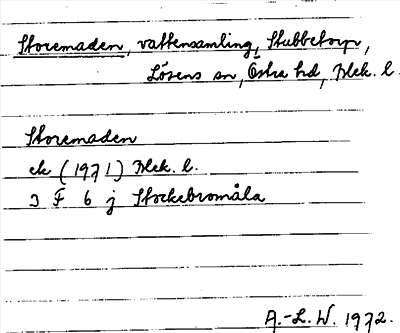 Storemaden, vattensamling, Stubbetorp,
Lösens sn, Östra hd, Blek. l.
Storemaden
ek (1971) Blek. l.
3 F 6 j Stockebromåla
A.-L. W. 1972.